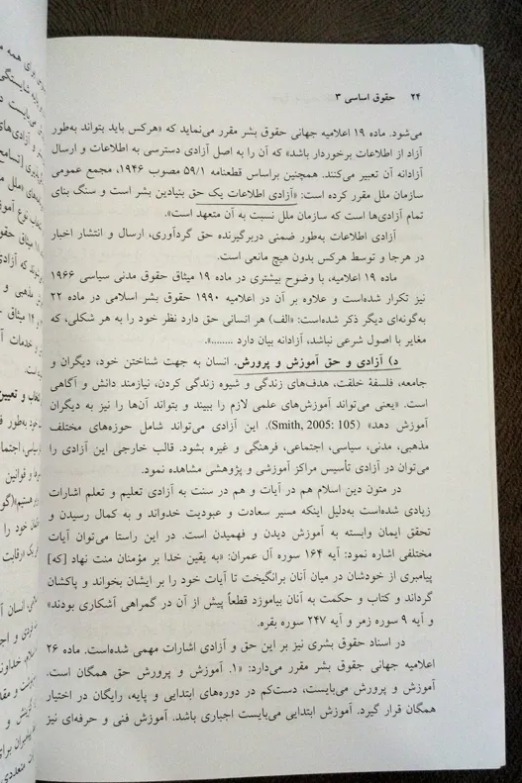 ۲۴ حقوق اساسی ۳
می‌شود. ماده ۱۹ اعلامیه جهانی حقوق بشر مقرر می‌نماید که «هرکس باید بتواند به‌طور
آزاد از اطلاعات برخوردار باشد» که آن را به اصل آزادی دسترسی به اطلاعات و ارسال
آزادانه آن تعبیر می‌کنند. همچنین براساس قطعنامه ۵۹/۱ مصوب ۱۹۴۶، مجمع عمومی
سازمان ملل مقرر کرده است: «آزادی اطلاعات یک حق بنیادین بشر است و سنگ بنای
تمام آزادی‌ها است که سازمان ملل نسبت به آن متعهد است».
آزادی اطلاعات به‌طور ضمنی دربرگیرنده حق گردآوری، ارسال و انتشار اخبار
در هرجا و توسط هرکس بدون هیچ مانعی است.
ماده ۱۹ اعلامیه، با وضوح بیشتری در ماده ۱۹ میثاق حقوق مدنی سیاسی ۱۹۶۶
نیز تکرار شده‌است و علاوه بر آن در اعلامیه ۱۹۹۰ حقوق بشر اسلامی در ماده ۲۲
به‌گونه‌ای دیگر ذکر شده‌است: «الف) هر انسانی حق دارد نظر خود را به هر شکلی، که
مغایر با اصول شرعی نباشد، آزادانه بیان دارد ........».
د) آزادی و حق آموزش و پرورش. انسان به جهت شناختن خود، دیگران و
جامعه، فلسفهٔ خلقت، هدف‌های زندگی و شیوه زندگی کردن، نیازمند دانش و آگاهی
است. «یعنی می‌تواند آموزش‌های علمی لازم را ببیند و بتواند آن‌ها را نیز به دیگران
آموزش دهد» (Smith, 2005: 105). این آزادی می‌تواند شامل حوزه‌های مختلف
مذهبی، مدنی، سیاسی، اجتماعی، فرهنگی و غیره بشود. قالب خارجی این آزادی را
می‌توان در آزادی تأسیس مراکز آموزشی و پژوهشی مشاهده نمود.
در متون دین اسلام هم در آیات و هم در سنت به آزادی تعلیم و تعلم اشارات
زیادی شده‌است به‌دلیل اینکه مسیر سعادت و عبودیت خدواند و به کمال رسیدن و
تحقق ایمان وابسته به آموزش دیدن و فهمیدن است. در این راستا می‌توان آیات
مختلفی اشاره نمود: آیه ۱۶۴ سوره آل عمران: «به یقین خدا بر مؤمنان منت نهاد [که]
پیامبری از خودشان در میان آنان برانگیخت تا آیات خود را بر ایشان بخواند و پاکشان
گرداند و کتاب و حکمت به آنان بیاموزد قطعاً پیش از آن در گمراهی آشکاری بودند»
و آیه ۹ سوره زمر و آیه ۲۴۷ سوره بقره.
در اسناد حقوق بشری نیز بر این حق و آزادی اشارات مهمی شده‌است. ماده ۲۶
اعلامیه جهانی حقوق بشر مقرر می‌دارد: «۱. آموزش و پرورش حق همگان است.
آموزش و پرورش می‌بایست، دست‌کم در دوره‌های ابتدایی و پایه، رایگان در اختیار
همگان قرار گیرد. آموزش ابتدایی می‌بایست اجباری باشد. آموزش فنی و حرفه‌ای نیز